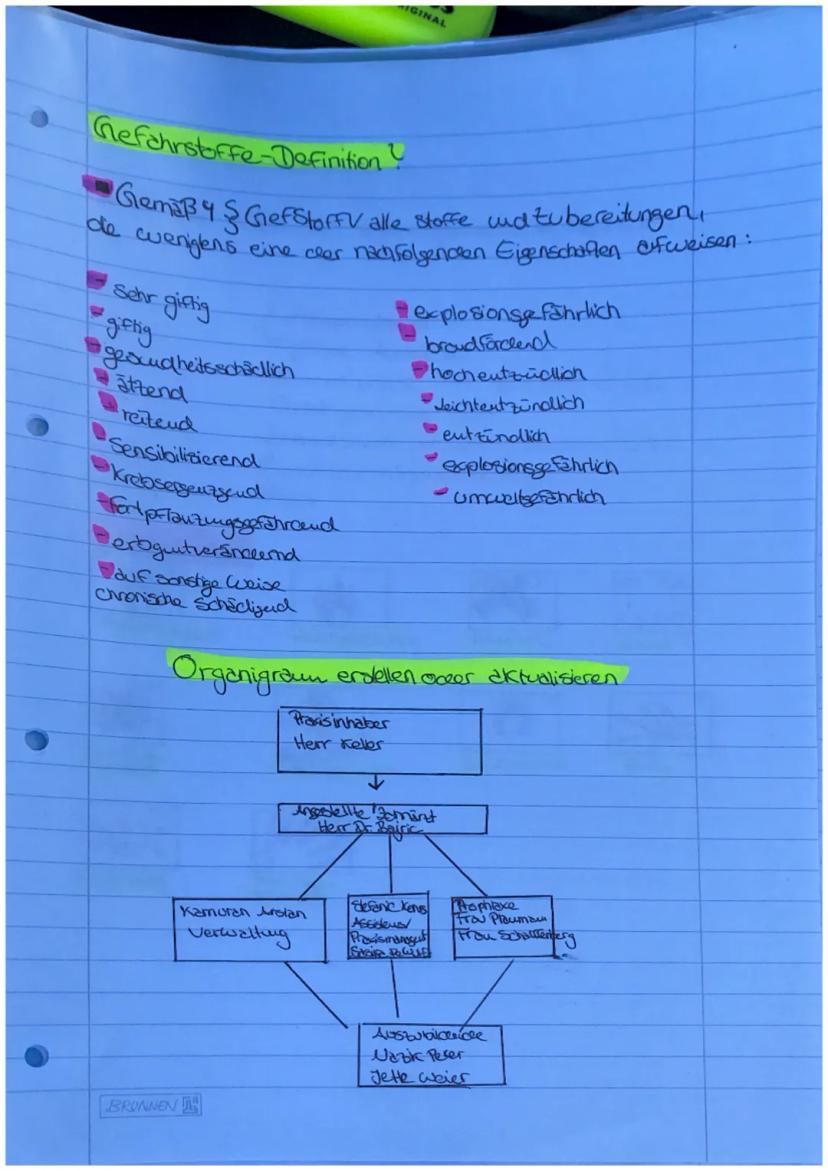 ORIGINAL
Gefahrstoffe-Definition?
Gemäß 4 § GefStoffV alle Stoffe und Zubereitungen,
die wenigtens eine der nachfolgenden Eigenschaften aufweisen:
- Sehr giftig
- giftig
- gesundheitsschädlich
- ätzend
- reitend
- Sensibilisierend
- Krebserzeugend
- fortpflanzungsgefährdend
- erbgutverändernd
- auf sonstige Weise
chronische Schädigend
- explosionsgefährlich
- brandfördend
- hochentzündlich
- leichtentzündlich
- entzündlich
- explosionsgefährlich
- umweltgefährlich
Organigramm erstellen oder aktualisieren
Praxisinhaber
Herr Keller
Angestellte
Herr Dr.
Kamuran Arslan
Verwaltung
Praxismanagerin
Frau Plaumann
Frau Schattenberg
Auszubildende
Peker
Jette Weier
BRUNNEN